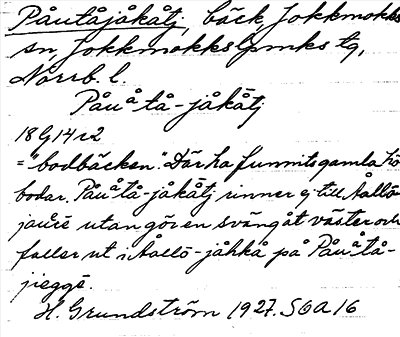 Påutåjåkåtj, bäck, Jokkmokks
sn, Jokkmokks lpmks tg,
Norrb. l.
Påuåtå-jåkåtj
18 G 14 r2
= "bodbäcken". Där ha funnits gamla hö
bodar. Påuåtå-jåkåtj rinner ej till Aallō-
jaure utan gör en sväng åt väster och
faller ut i Aallō-jåhkå på Påuåtå-
jieggē.
H. Grundström 1927. SOA 16